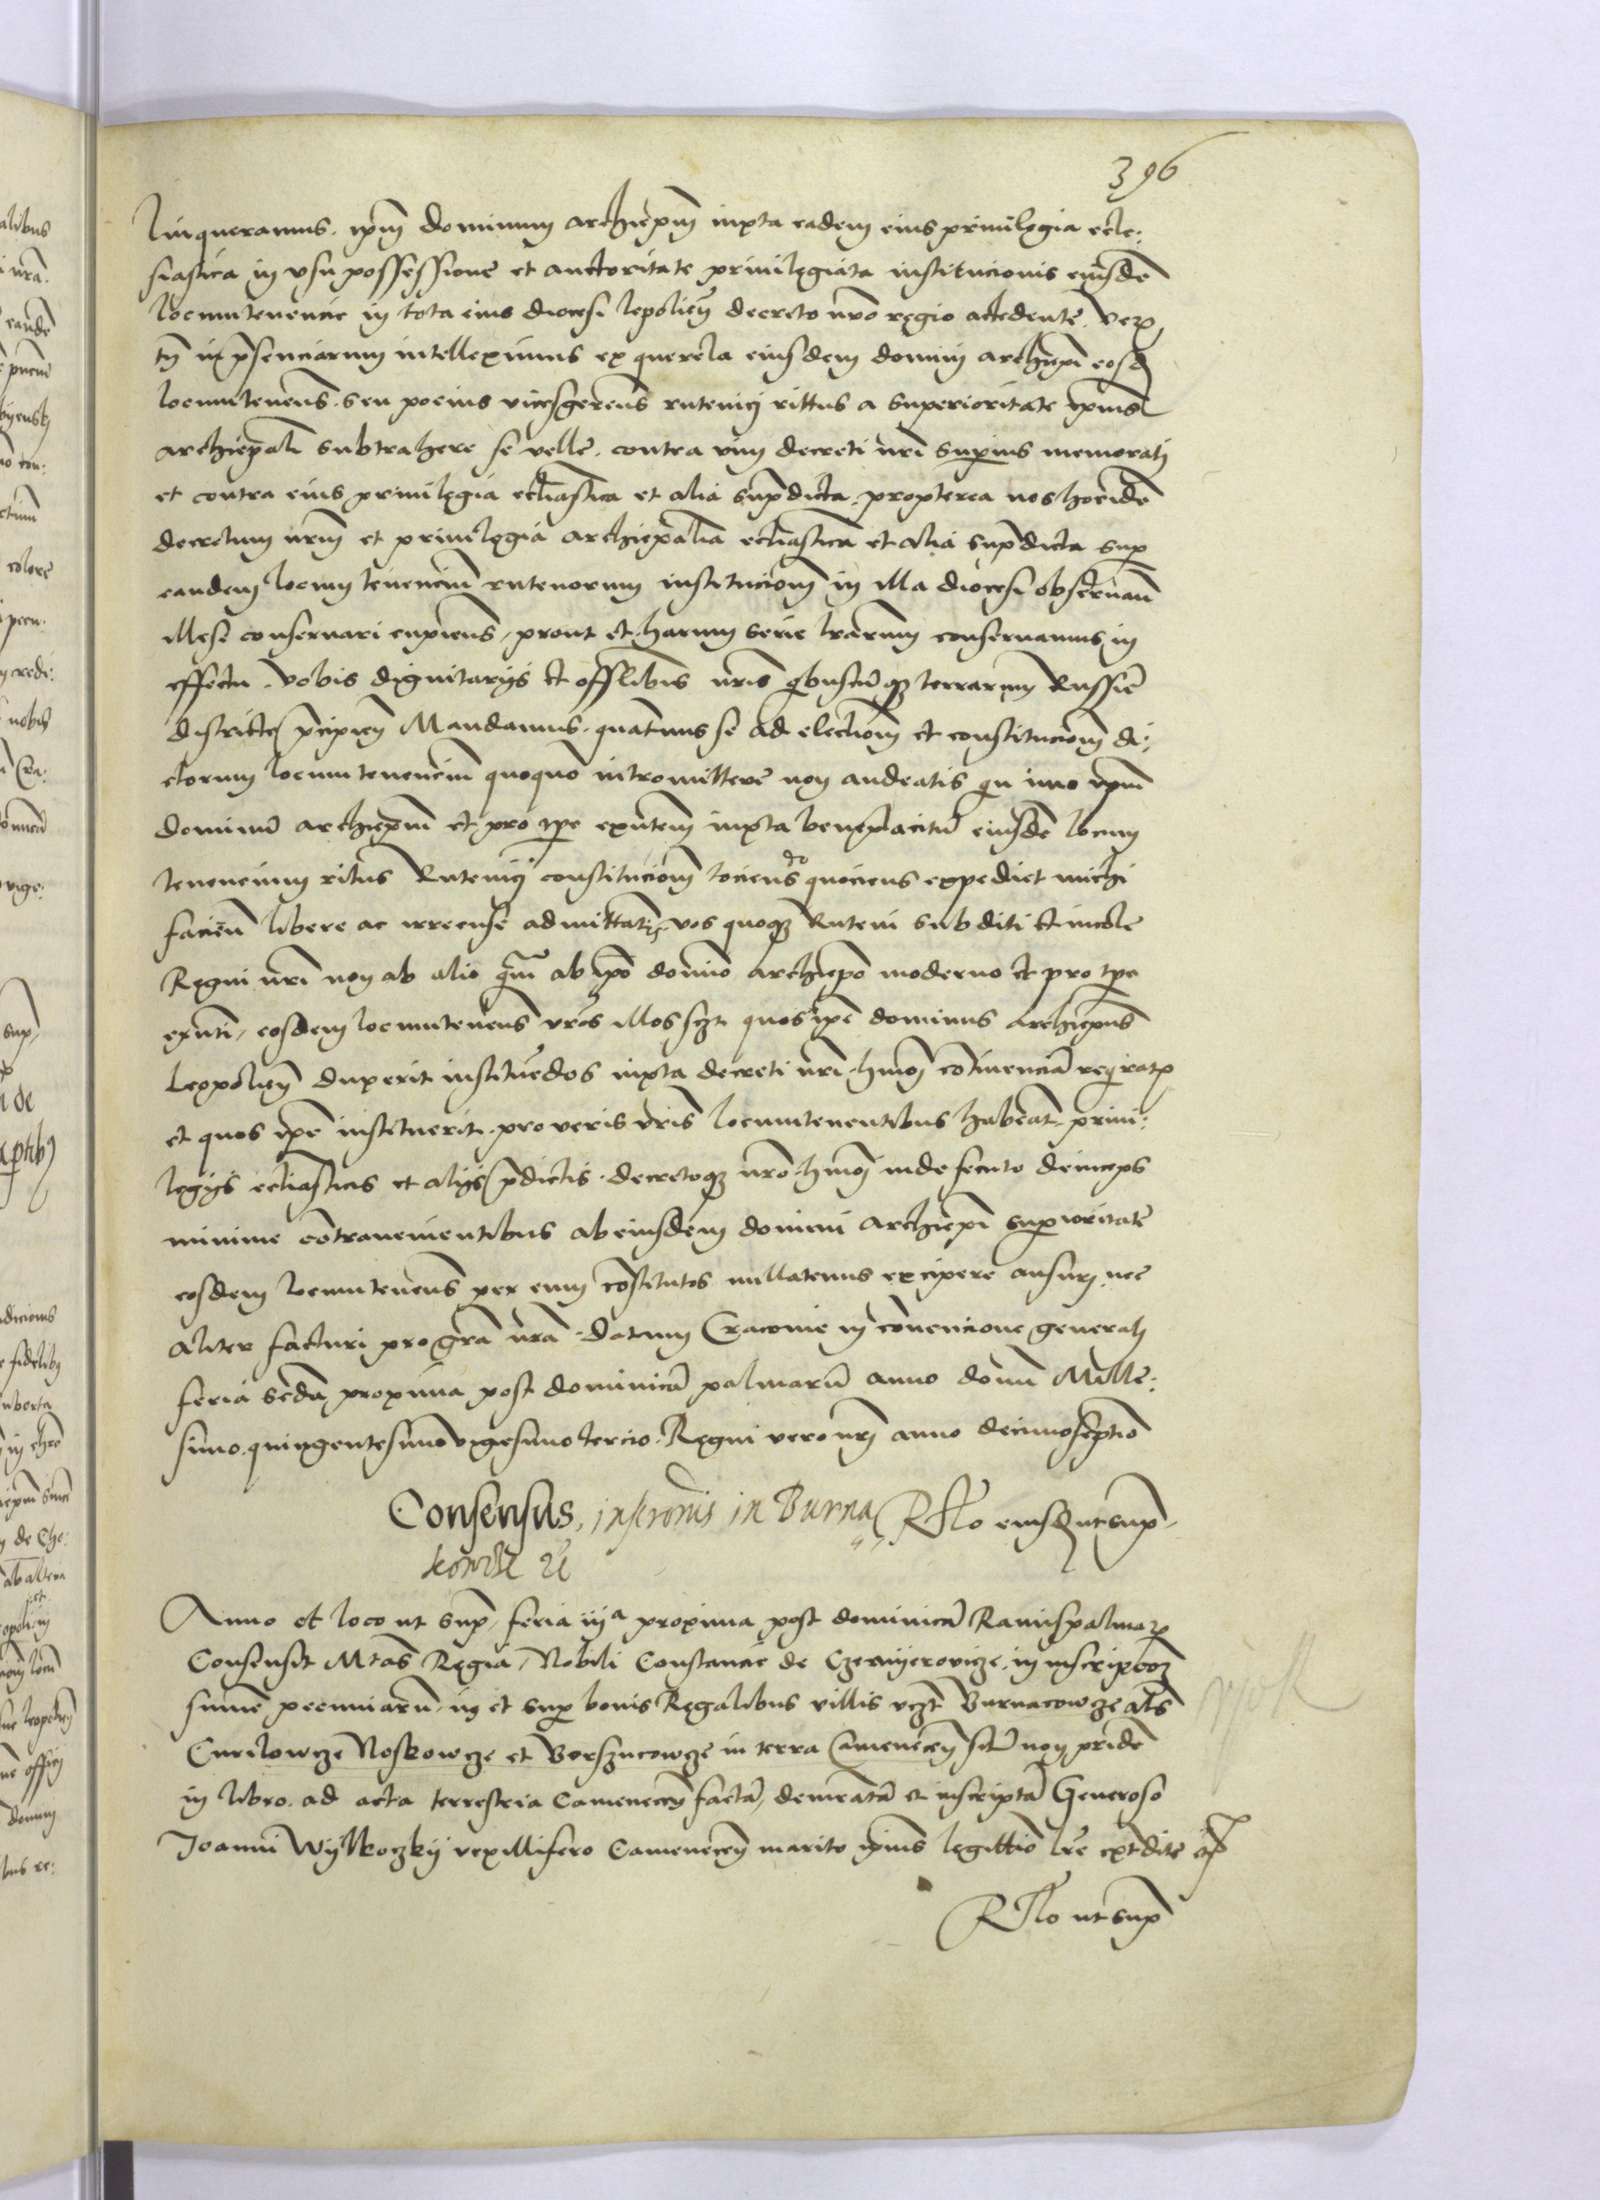 396
linqueramus. ipm̄ dominum archiepm̄ iuxta eadem eius priuilegia eccle:
siastica in vsu possessione et auctoritate priuilegiata institucionis eiusdē
locumtenencie in tota eius diocesi leopolien̄ decreto nr̄o regio accedente. Verū
tn̄ in pn̄senciarum intelleximus ex querela eiusdem domini archiepī eosd
locumtenen̄s. seu pocius vicesgeren̄s rutenici rittus a superioritate ipius
archiepali subtrahere se velle. contra vim decreti nr̄i superius memorati
et contra eius priuilegia ecclīastica et alia supradicta. propterea nos hoc idē
decretum nr̄m et priuilegia archiepalia ecclīastica et alia supradicta sup
eandem locum tenenciū rutenorum institucionem in illa diocesi obseruan̄
illesi conseruari cupien̄s, prout et harum serie lrarum conseruamus, in
effectu. Vobis dignitarijs et offlibus nr̄is qbuscūqz terrarum Russie
districte pcipien̄ Mandamus. quatenus se ad electionem et constitucionem di:
ctorum locumtenenciū quoquo intromittere non audeatis qn imo ipm̄
dominū archiepm̄ et pro tpe exn̄tem iuxta beneplacitū eiusdē locum
tenencium ritus Rutenici constitucionem tociens quociens expediet michi
facien̄ libere ac irrecuse admittatis, vos quoqz Ruteni subditi et incole
Regni nr̄i non ab alio qm̄ ab ipo domino archiepo moderno et pro tpe
exn̄ti, eosdem locumtenen̄s vr̄os illos szt quos ipe dominus archiepus
Leopolien̄ duxerit instituēdos iuxta decreti nr̄i hmōi cōtinenciā requiratis
et quos ipe instituerit. pro veris vr̄is locumtenentibus habeatis. priui:
legijs ecclīasticis et alijs pdictis. decretoqz nr̄o hmōi inde secuto deinceps
minime cōtrauenientibus ab eiusdem domini archiepī superioritate
eosdem locumtenen̄s per eum cōstitutos nullatenus excipere ausuri, nec
aliter facturi pro grā nrā. Datum Cracouie in cōuencione generali
feria secda proxima post dominicā palmarū anno domini Mille:
simo. quingentesimo vigesimo tercio. Regni vero nr̄i anno decimoseptīo
Consensus, inscronis in Burna Rlo eiusd ut sup
kowcze
Anno et loco ut sup, feria iijª proxima post dominicā Ramispalmarū
Consensit Mtas Regia, Nobili Constancie de Czermijerowicze. in inscripcōem
summe pecuniarū, in et sup bonis Regalibus villis vczt Burnacowcze als
Curilowcze Noskowcze et Borszucowcze in terra Camenecen̄ sitis non pridē
in libro. ad acta terrestria Camenecen̄ factā, demratā et inscriptā Generoso
Joanni Wijlkoczkij vexillifero Camenecen̄ marito ipius legittīo lre extdite
Rlo ut sup